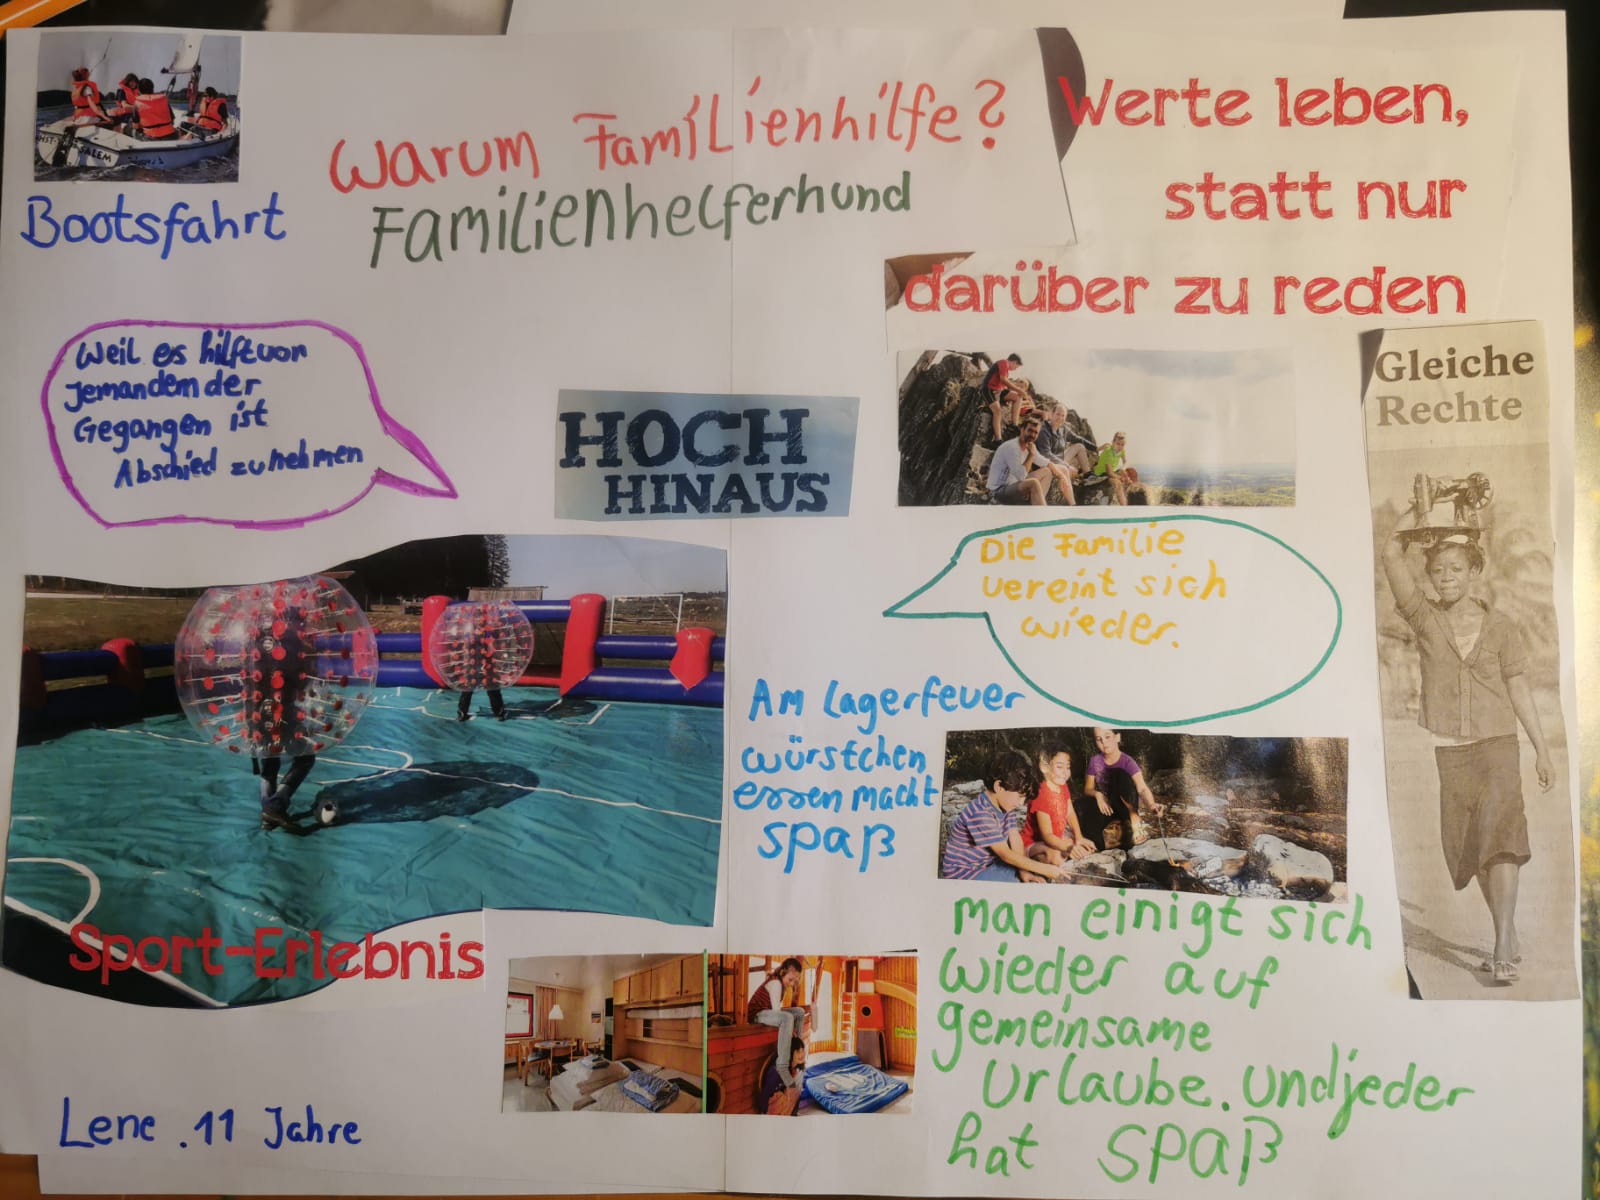 Warum Familienhilfe?
Familienhelferhund
Werte leben,
statt nur
darüber zu reden
SALEM
Bootsfahrt
Weil es hilft von
Jemandem der
Gegangen ist
Abschied zu nehmen
HOCH
HINAUS
Gleiche
Rechte
Die Familie
vereint sich
wieder.
Am Lagerfeuer
würstchen
essen macht
Spaß
Sport-Erlebnis
man einigt sich
wieder auf
gemeinsame
Urlaube. und jeder
hat Spaß
Lene . 11 Jahre